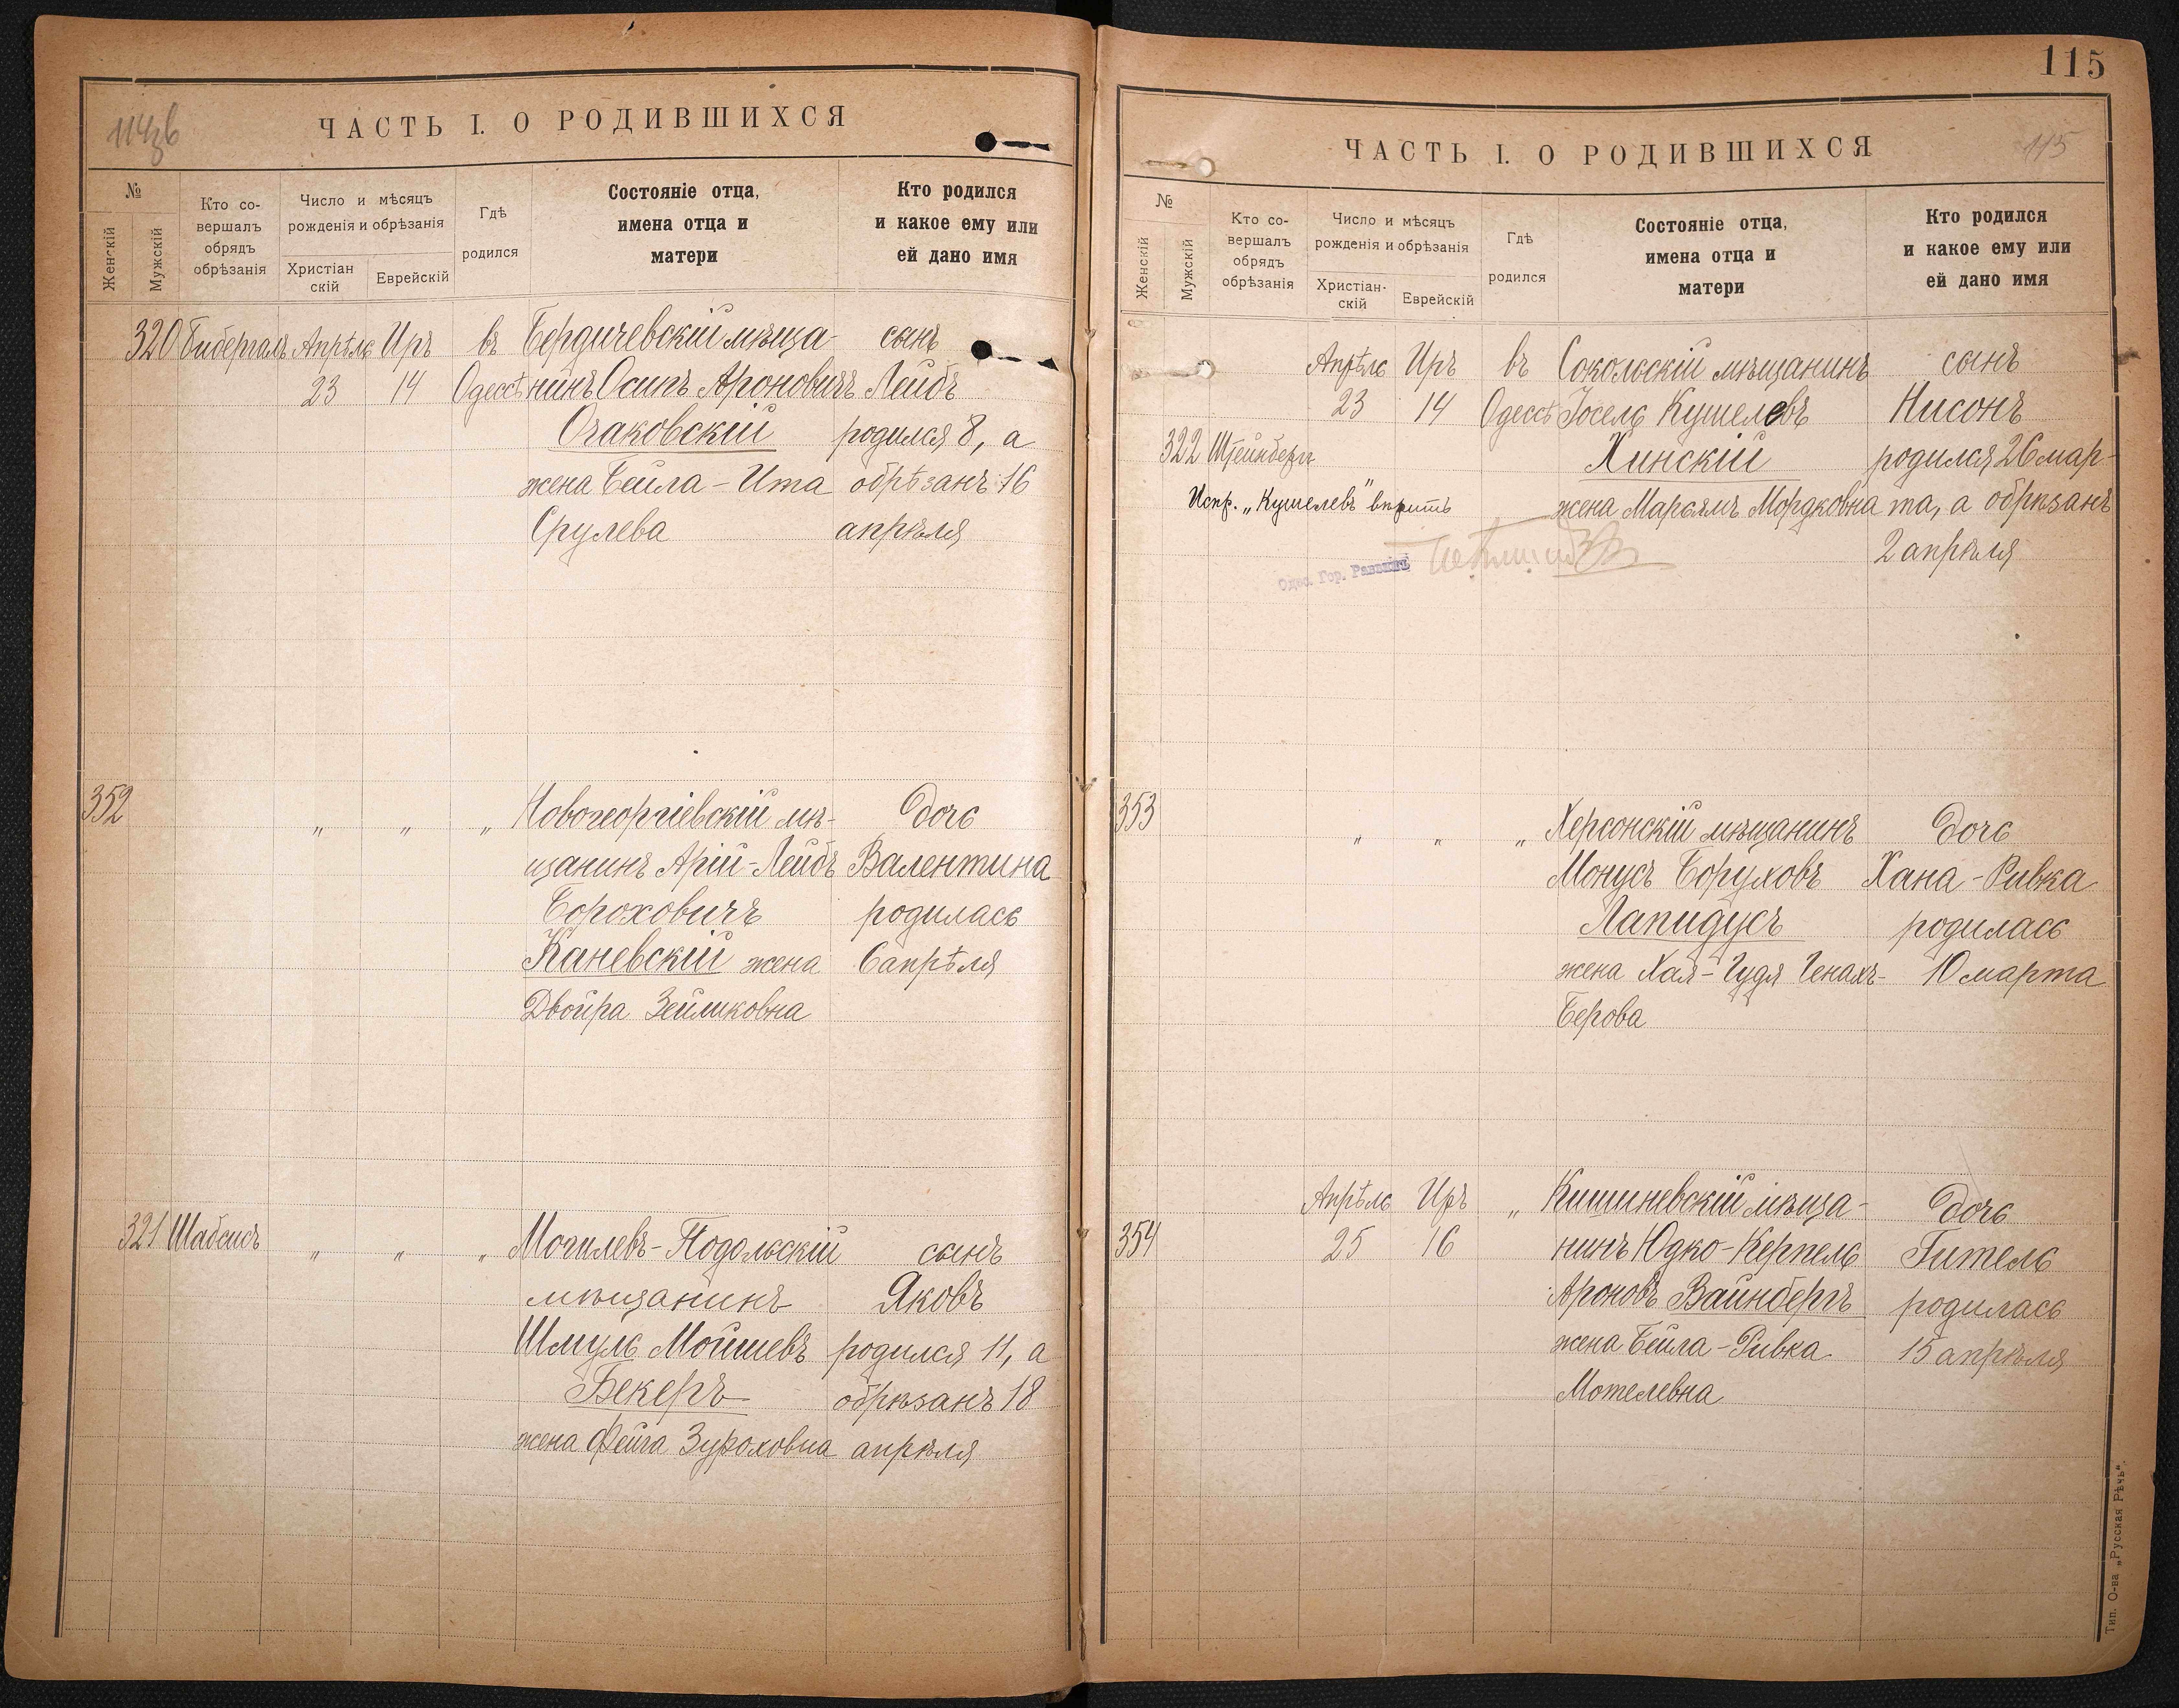 114зв
ЧАСТЬ I. О РОДИВШИХСЯ
№
Женскій
Мужскій
Кто со-
вершалъ
обрядъ
обрѣзанія
Число и мѣсяцъ
рожденія и обрѣзанія
Христіан
скій
Еврейскій
Гдѣ
родился
Состояніе отца,
имена отца и
матери
Кто родился
и какое ему или
ей дано имя
320 Бибергалъ Апрѣль Иръ въ Бердичевскій мѣща- сынъ
23 14 Одессѣ нинъ Осипъ Ароновичъ Лейбъ
Очаковскій родился 8, а
жена Бейла-Ита обрѣзанъ 16
Срулева апрѣля
352 „ „ „ Новогеоргіевскій мѣ- дочь
щанинъ Арій-Лейбъ Валентина
Бороховичъ родилась
Каневскій жена 6 апрѣля
Двойра Зейликовна
321 Шабсисъ „ „ „ Могилевъ-Подольскій сынъ
мѣщанинъ Яковъ
Шмуль Мойшевъ родился 11, а
Бекеръ обрѣзанъ 18
жена Фейга Зуроховна апрѣля
115
ЧАСТЬ I. О РОДИВШИХСЯ
115
№
Женскій
Мужскій
Кто со-
вершалъ
обрядъ
обрѣзанія
Число и мѣсяцъ
рожденія и обрѣзанія
Христіан-
скій
Еврейскій
Гдѣ
родился
Состояніе отца,
имена отца и
матери
Кто родился
и какое ему или
ей дано имя
Апрѣль Иръ въ Сокольскій мѣщанинъ сынъ
23 14 Одессѣ Іосель Кушелевъ Нисонъ
322 Штейнбергъ Хинскій родился 26 мар-
Испр. „Кушелевъ" вѣрить жена Марьямъ Мордковна та, а обрѣзанъ
2 апрѣля
Одес. Гор. Раввинъ
353 „ „ „ Херсонскій мѣщанинъ дочь
Монусъ Боруховъ Хана-Ривка
Лапидусъ родилась
жена Хая-Гудя Генахъ- 10 марта
Берова
Апрѣль Иръ „ Кишиневскій мѣща- дочь
354 25 16 нинъ Юдко-Керпель Гитель
Ароновъ Вайнбергъ родилась
жена Бейла-Ривка 15 апрѣля
Мотелевна
Тип. О-ва „Русская Рѣчь".